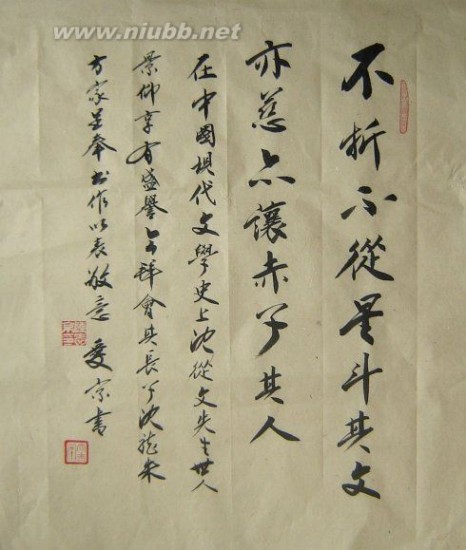 www.niubb.net
不折不從星斗其文
亦慈亦讓赤子其人
在中國現代文學史上沈從文先生世人
景仰享有盛譽今拜會其長沈龍朱
方家呈奉書作以表敬意 愛宗書